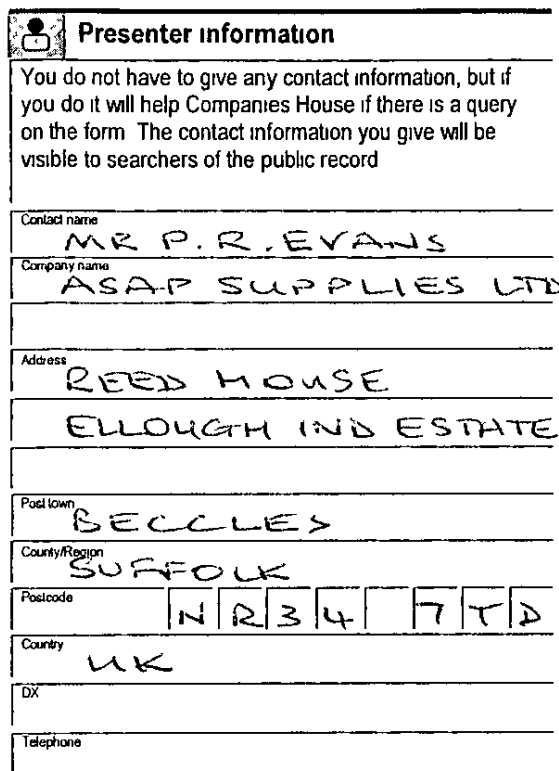 Presenter information
You do not have to give any contact information, but if
you do it will help Companies House if there is a query
on the form The contact information you give will be
visible to searchers of the public record
Contact name
MR P.R. EVANS
Company name
ASAP SUPPLIES LTD
Address
REED HOUSE
ELLOUGH IND ESTATE
Post town
BECCLES
County/Region
SUFFOLK
Postcode
NR34 7TD
Country
UK
DX
Telephone